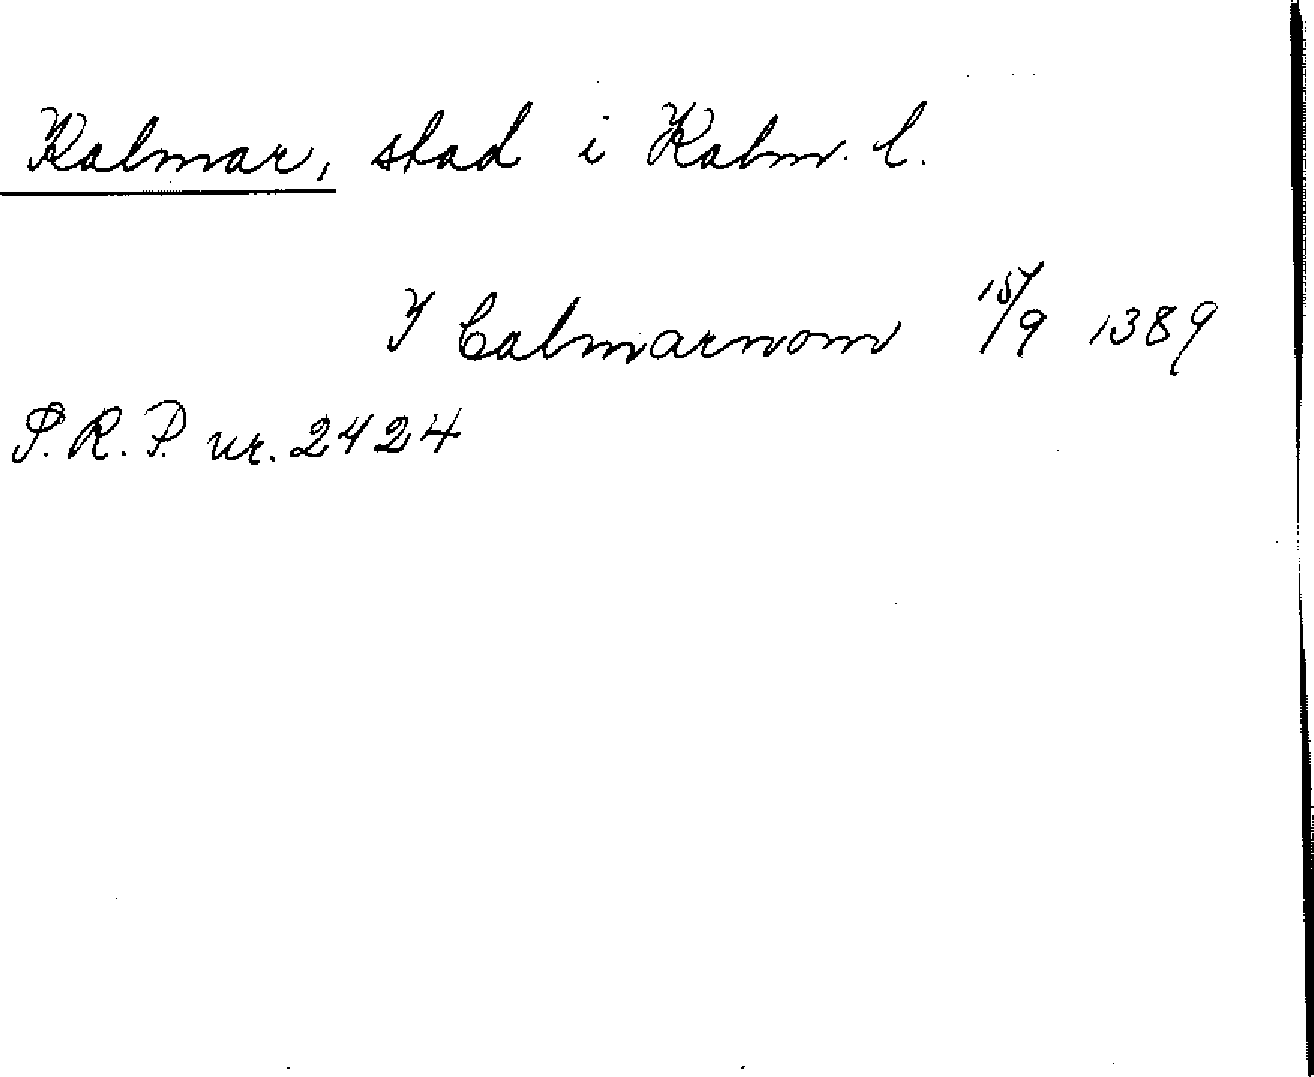 Kalmar, stad i Kalm. l.
I Calmarnom 15/9 1389
S.R.P. nr. 2424